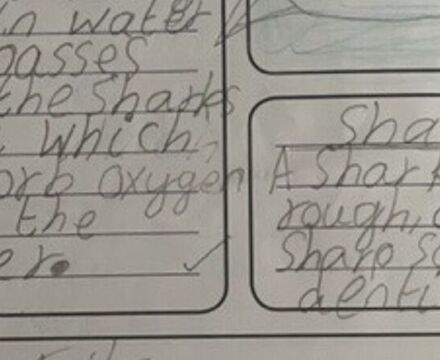 in water
passes
the sharks
which,
orb oxygen
the
er.
Sha
A Shar
rough,
Sharp Sc
denti